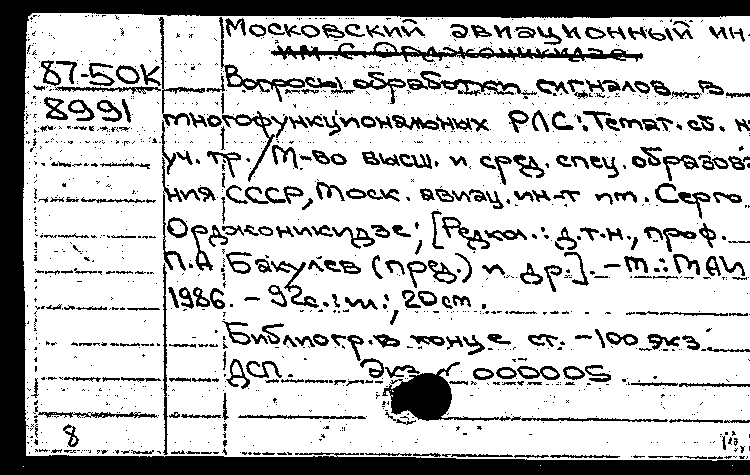 Московский авиационный ин-
им. С. Орджоникидзе
87-50к Вопросы обработки сигналов в
8991 многофункциональных РЛС: Темат. сб. н
уч. тр. / М-во высш. и сред. спец. образова
ния СССР, Моск. авиац. ин-т им. Серго
Орджоникидзе; [Редкол.: д.т.н., проф.
П.А Бакулев (пред.) и др.]. - М.: МАИ
1986. - 92с.: ил.; 20 см.
Библиогр. в конце ст. - 100 экз.
ДСП. Экз. N 000005
8